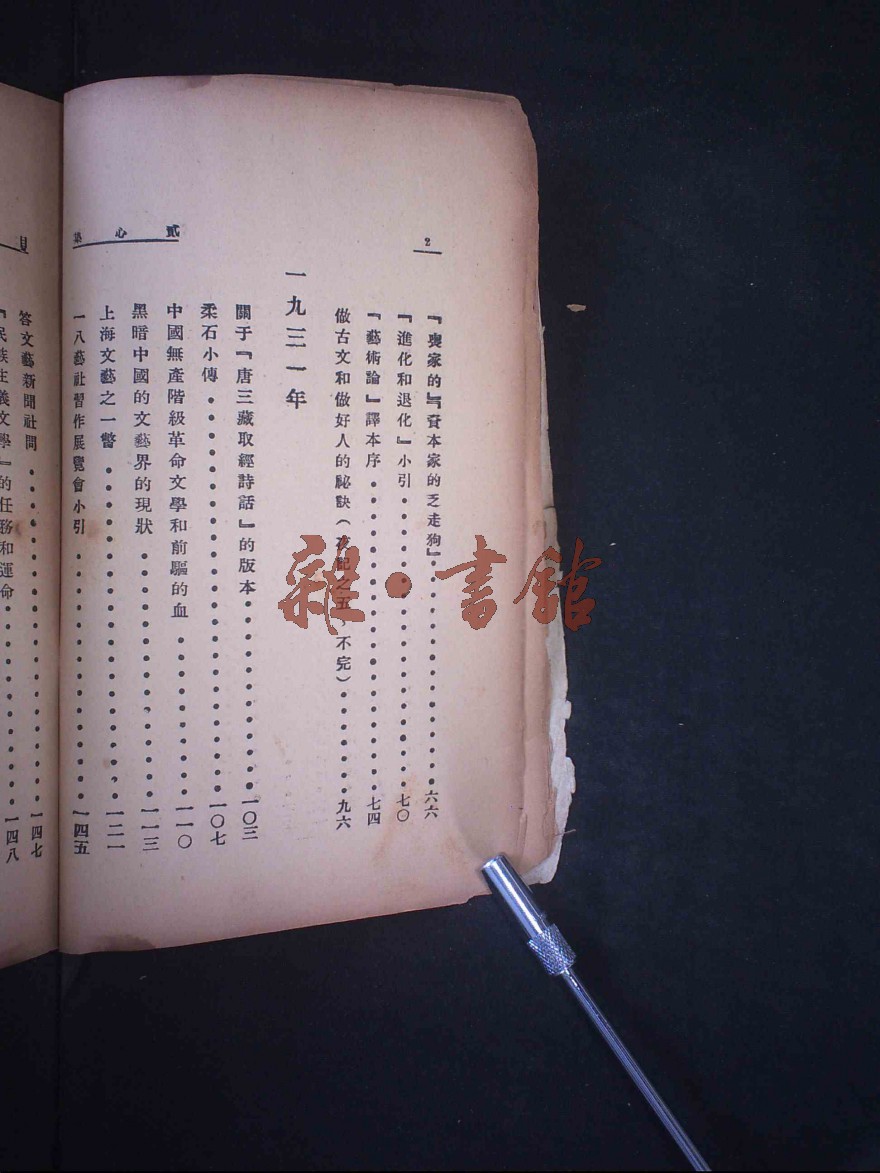 2
『喪家的』『資本家的乏走狗』……六六
『進化和退化』小引……七〇
『藝術論』譯本序……七四
做古文和做好人的祕訣(夜記之五·不完)……九六
一九三一年
關于『唐三藏取經詩話』的版本……一〇三
柔石小傳……一〇七
中國無產階級革命文學和前驅的血……一一〇
黑暗中國的文藝界的現狀……一一三
上海文藝之一瞥……一二一
一八藝社習作展覽會小引……一四五
貳心集
答文藝新聞社問……一四七
『民族主義文學』的任務和運命……一四八
目
雜·書館